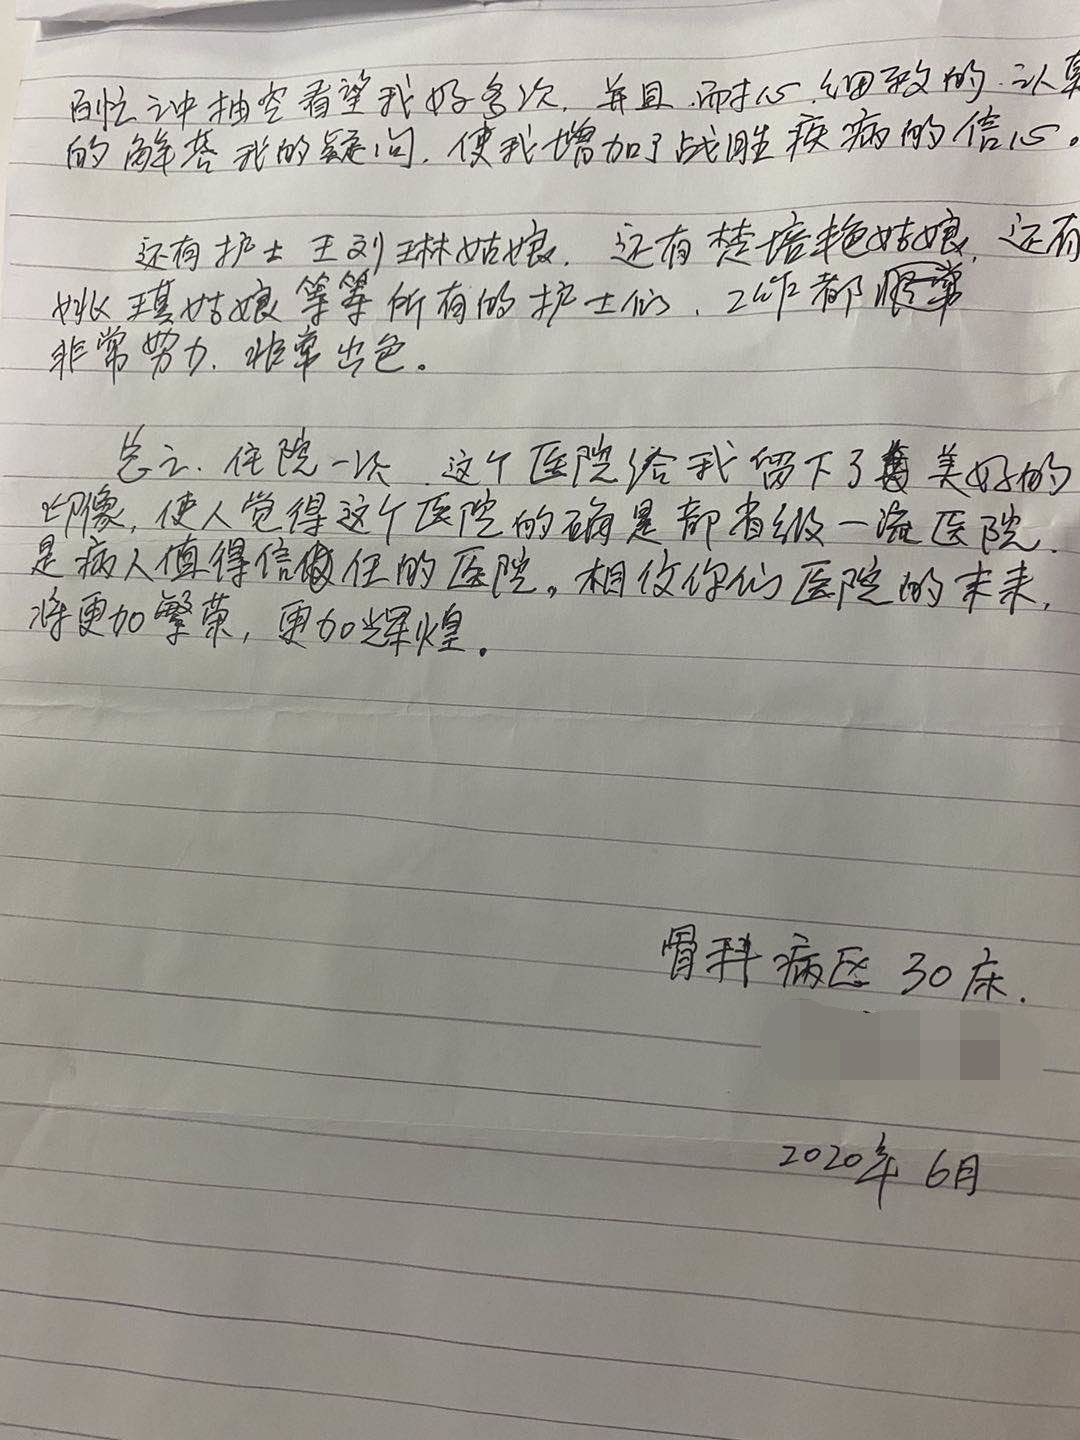 百忙之冲抽空看望我好多次，并且，耐心，细致的，认真
的解答我的疑问，使我增加了战胜疾病的信心。
还有护士王刘琳姑娘，还有楚培艳姑娘，还有
姚琪姑娘等等所有的护士们，工作都
非常努力，非常出色。
总之，住院一次，这个医院给我留下了美好的
印像，使人觉得这个医院的确是部省级一流医院，
是病人值得信任的医院。相信你们医院的未来，
将更加繁荣，更加辉煌。
骨科病区 30床.
2020年 6月